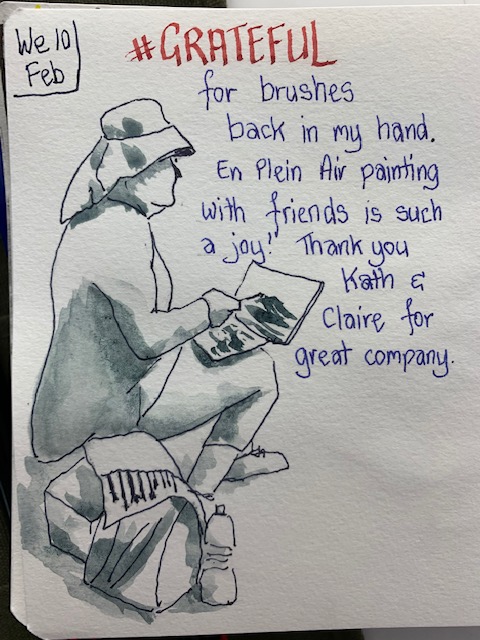 We 10
Feb
#GRATEFUL
for brushes
back in my hand.
En Plein Air painting
with friends is such
a joy!" Thank you
Kath &
Claire for
great company.